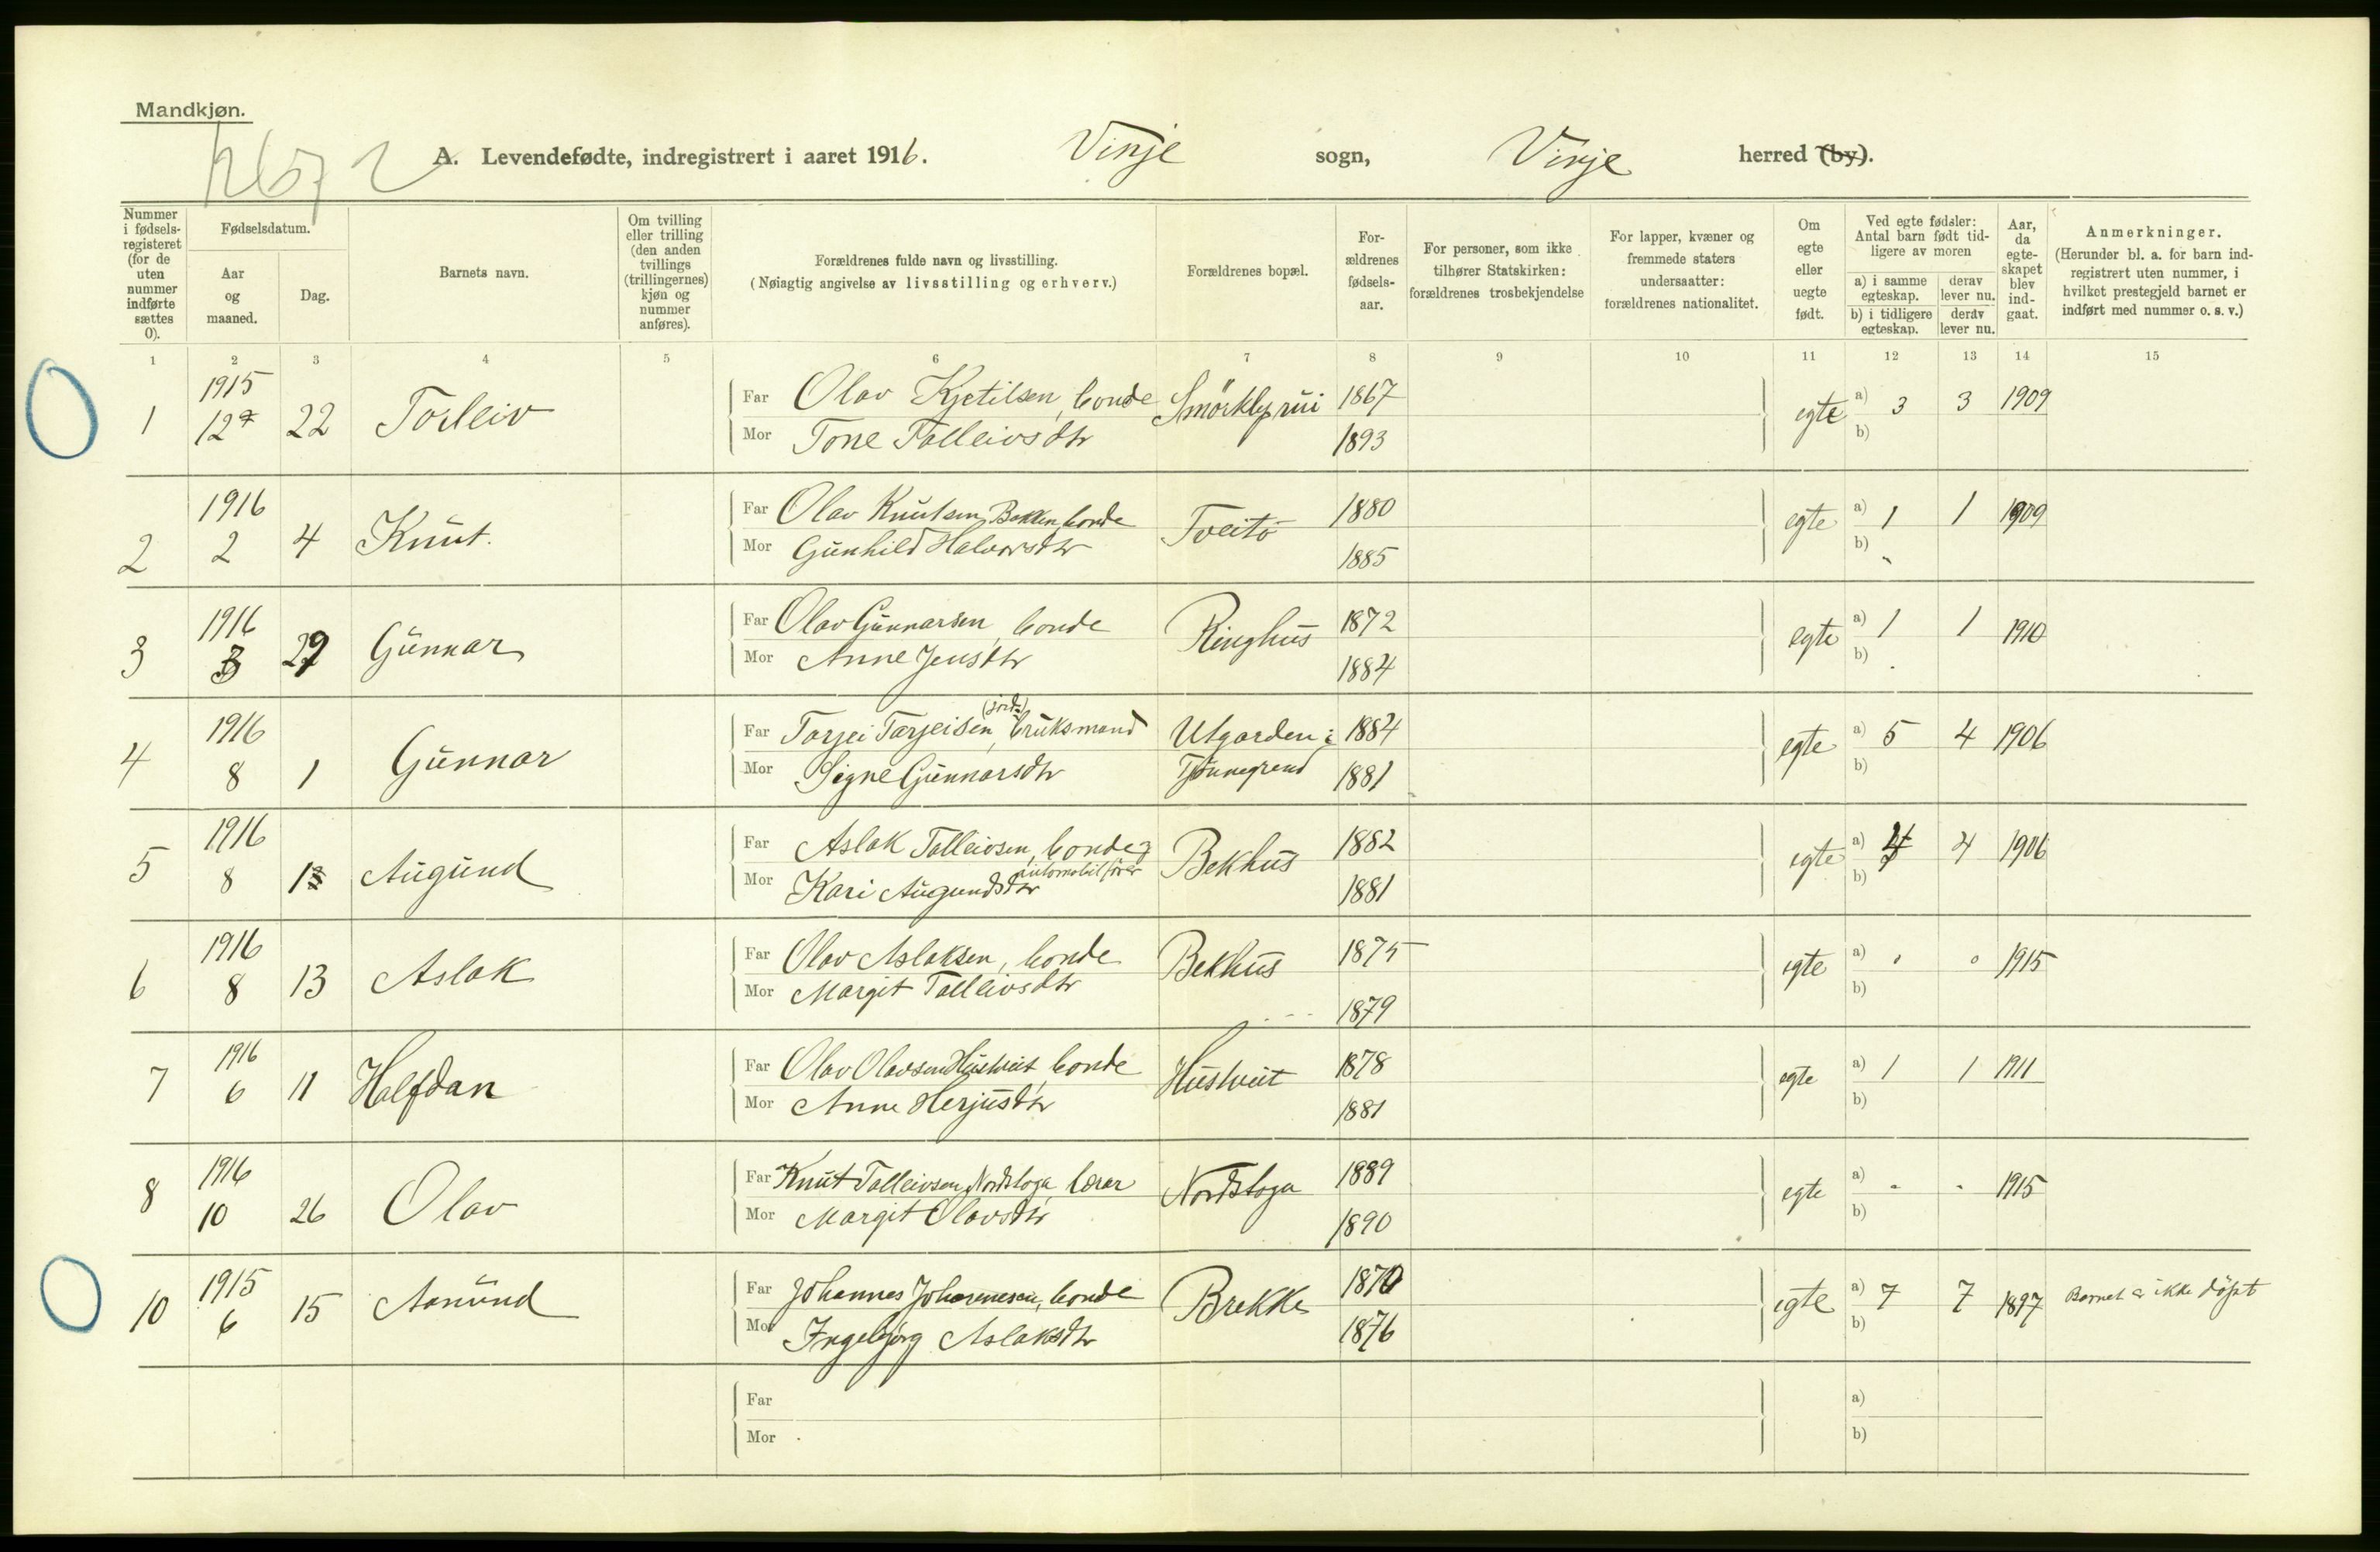 Mandkjøn.
A. Levendefødte, indregistrert i aaret 1916. Vinje sogn, Vinje herred (by).
Nummer i fødsels-registeret (for de uten nummer indførte sættes 0).
Fødselsdatum.
Aar og maaned.
Dag.
Barnets navn.
Om tvilling eller trilling (den anden tvillings (trillingernes) kjøn og nummer anføres).
Forældrenes fulde navn og livsstilling.
(Nøiagtig angivelse av livsstilling og erhverv.)
Forældrenes bopæl.
For-ældrenes fødsels-aar.
For personer, som ikke tilhører Statskirken: forældrenes trosbekjendelse
For lapper, kvæner og fremmede staters undersaatter: forældrenes nationalitet.
Om egte eller uegte født.
Ved egte fødsler: Antal barn født tid-ligere av moren
a) i samme egteskap.
derav lever nu.
b) i tidligere egteskap.
derav lever nu.
Aar, da egte-skapet blev ind-gaat.
Anmerkninger.
(Herunder bl. a. for barn ind-registrert uten nummer, i hvilket prestegjeld barnet er indført med nummer o. s. v.)
1 2 3 4 5 6 7 8 9 10 11 12 13 14 15
1915
1 12 22 Torleiv Far Olav Kjetilsen, bonde 1867 egte a) 3 3 1909
Mor Tone Talleivsdtr 1893 b)
1916
2 2 4 Knut. Far Olav Knutsen Bakken, bonde Tveito 1880 egte a) 1 1 1909
Mor Gunhild Halvorsdtr 1885 b)
1916
3 3 29 Gunnar Far Olav Gunnarsen, bonde Ringhus 1872 egte a) 1 1 1910
Mor Anne Jensdtr 1884 b)
1916
4 8 1 Gunnar Far Tarjei Tarjeisen, (jord) bruksmand Utgarden i 1884 egte a) 5 4 1906
Mor Signe Gunnarsdtr Tjønnegrend 1881 b)
1916
5 8 Augund Far Aslak Talleivsen, bonde og automobilfører Bekhus 1882 egte a) 4 4 1906
Mor Kari Augundsdtr 1881 b)
1916
6 8 13 Aslak Far Olav Aslaksen, bonde Bekhus 1875 egte a) 0 0 1915
Mor Margit Talleivsdtr 1879 b)
1916
7 6 11 Halfdan Far Olav Olavsen Hustveit, bonde Hustveit 1878 egte a) 1 1 1911
Mor Anne Herjusdtr 1881 b)
1916
8 10 26 Olav Far Knut Talleivsen Nordstoga, lærar Nordstoga 1889 egte a) - - 1915
Mor Margit Olavsdtr 1890 b)
1915
10 6 15 Aamund Far Johannes Johannesen, bonde Brekke 1870 egte a) 7 7 1897 Barnet er ikke døpt
Mor Ingebjørg Aslaksdtr 1876 b)
Far a)
Mor b)